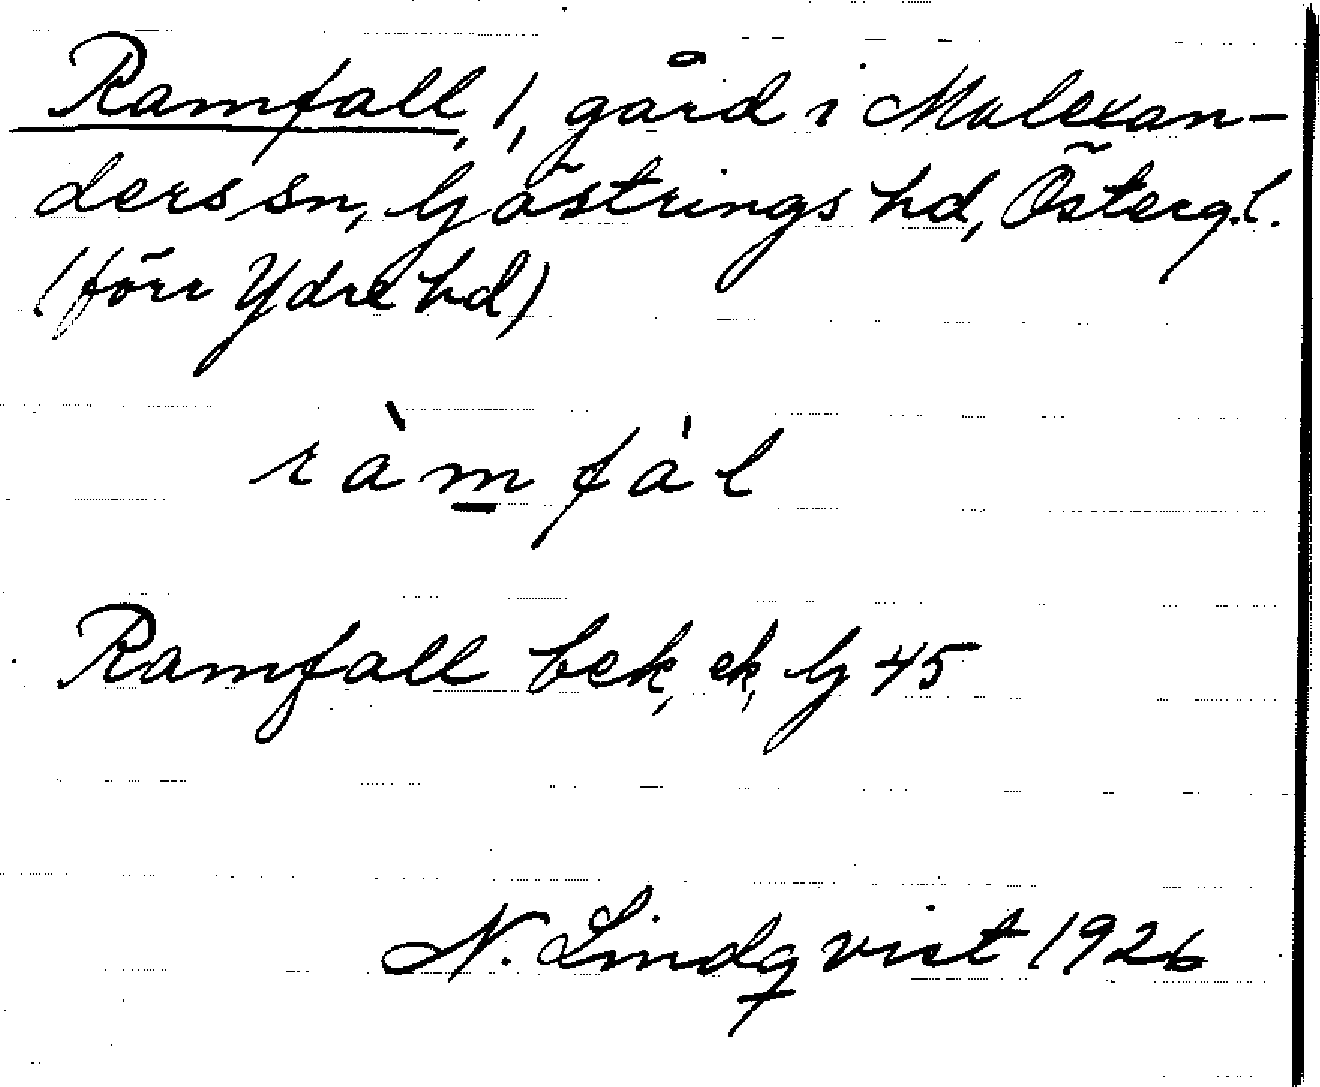 Ramfall, 1, gård i Malexan-
ders sn, Göstrings hd, Östergl.
(förr Ydre hd)
ràmfàl
Ramfall bek, ek, G 45
N. Lindqvist 1926